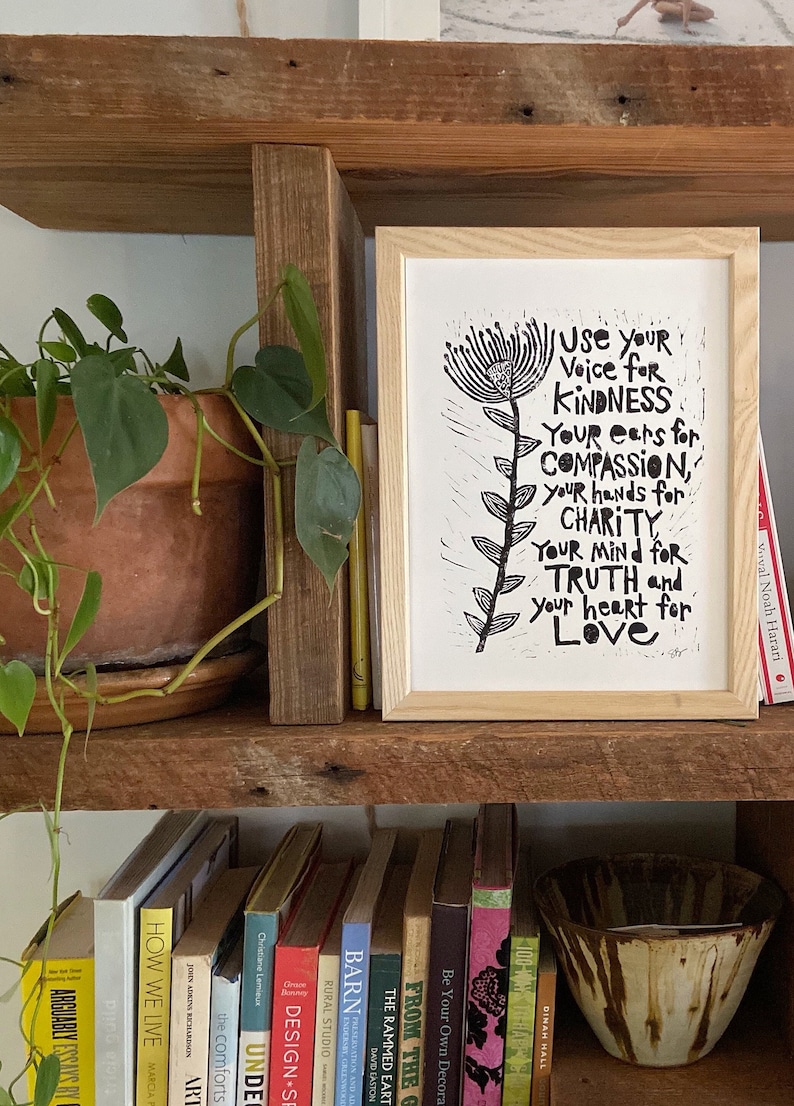 Use your
Voice for
KINDNESS
Your ears for
COMPASSION,
your hands for
CHARITY,
Your MIND for
TRUTH and
your heart for
LOVE
Yuval Noah Harari
New York Times
Bestselling Author
ARGUABLY ESSAYS BY
HOW WE LIVE
MARCIA
JOHN ADKINS RICHARDSON
ART
the comforts
Christiane Lemieux
UNDEC
Grace Bonney
DESIGN*SP
RURAL STUDIO
SAMUEL
BARN
PRESERVATION AND
ENDERSBY, GREENWOOD
THE RAMMED EART
DAVID EASTON
FROM THE G
Be Your Own Decora
DINAH HALL